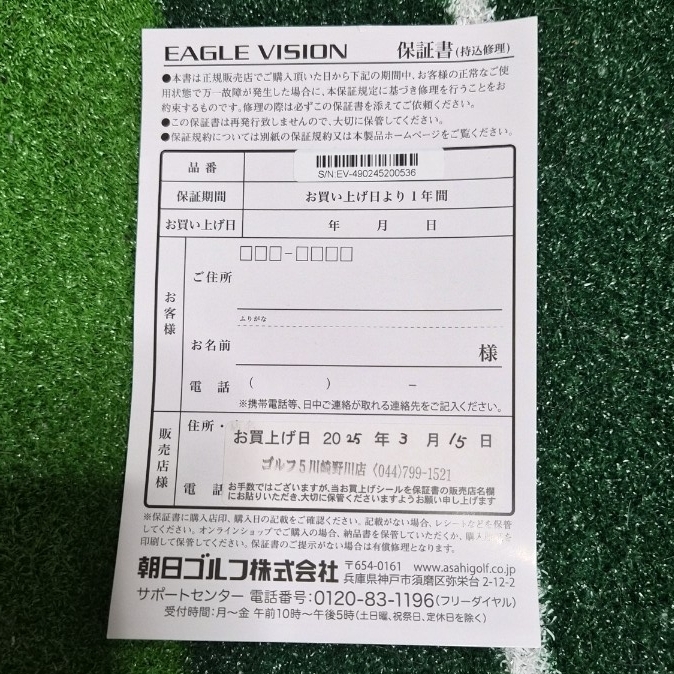 EAGLE VISION 保証書(持込修理)
●本書は正規販売店でご購入頂いた日から下記の期間中、お客様の正常なご使
用状態で万一故障が発生した場合に、本保証規定に基づき修理を行うことをお
約束するものです。修理の際は必ずこの保証書を添えてご依頼ください。
●この保証書は再発行致しませんので、大切に保管してください。
●保証規約については別紙の保証規約又は本製品ホームページをご覧ください。
品番
S/N:EV-490245200536
保証期間 お買い上げ日より1年間
お買い上げ日 年 月 日
お客様
□□□-□□□□
ご住所
ふりがな
お名前 様
電話 ( ) −
※携帯電話等、日中ご連絡が取れる連絡先をご記入ください。
販売店様
住所・
お買上げ日 2025 年 3 月 15 日
ゴルフ5川崎野川店 (044)799-1521
電話
お手数ではございますが、当お買上げシールを保証書の販売店名欄
にお貼りいただき、大切に保管くださいますようお願い申し上げます
※保証書に購入店印、購入日の記載をご確認ください。記載がない場合、レシートなどを保管
してください。オンラインショップでご購入の場合、納品書を保管していただくか、購入
を
印刷して保管してください。保証書のご提示がない場合は有償修理となります。
朝日ゴルフ株式会社 〒654-0161 www.asahigolf.co.jp
兵庫県神戸市須磨区弥栄台2-12-2
サポートセンター 電話番号:0120-83-1196(フリーダイヤル)
受付時間:月〜金 午前10時〜午後5時(土日曜、祝祭日、定休日を除く)